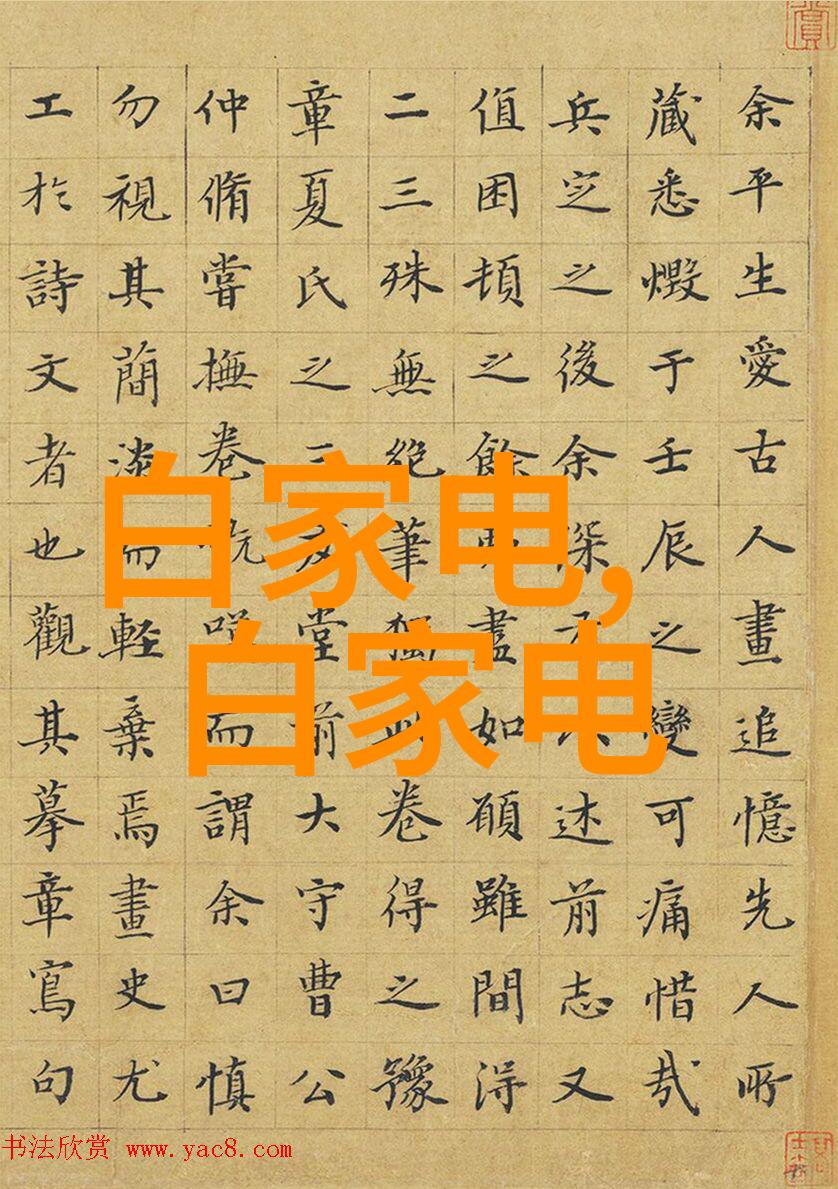 余平生愛古人畫追憶先人所
蔵悉燬于壬辰之變可痛惜哉
兵㝎之後余深以述前志又
值困頓之餘盡如願雖間得
二三殊無絶筆獨此卷得之豫
章夏氏之三友堂前大守曹公
仲脩嘗撫卷玩咲而謂余曰慎
勿視其簡淡而輕棄焉畫史尤
工於詩文者也觀其摹章寫句
白家电,
白家电
书法欣赏 www.yac8.com